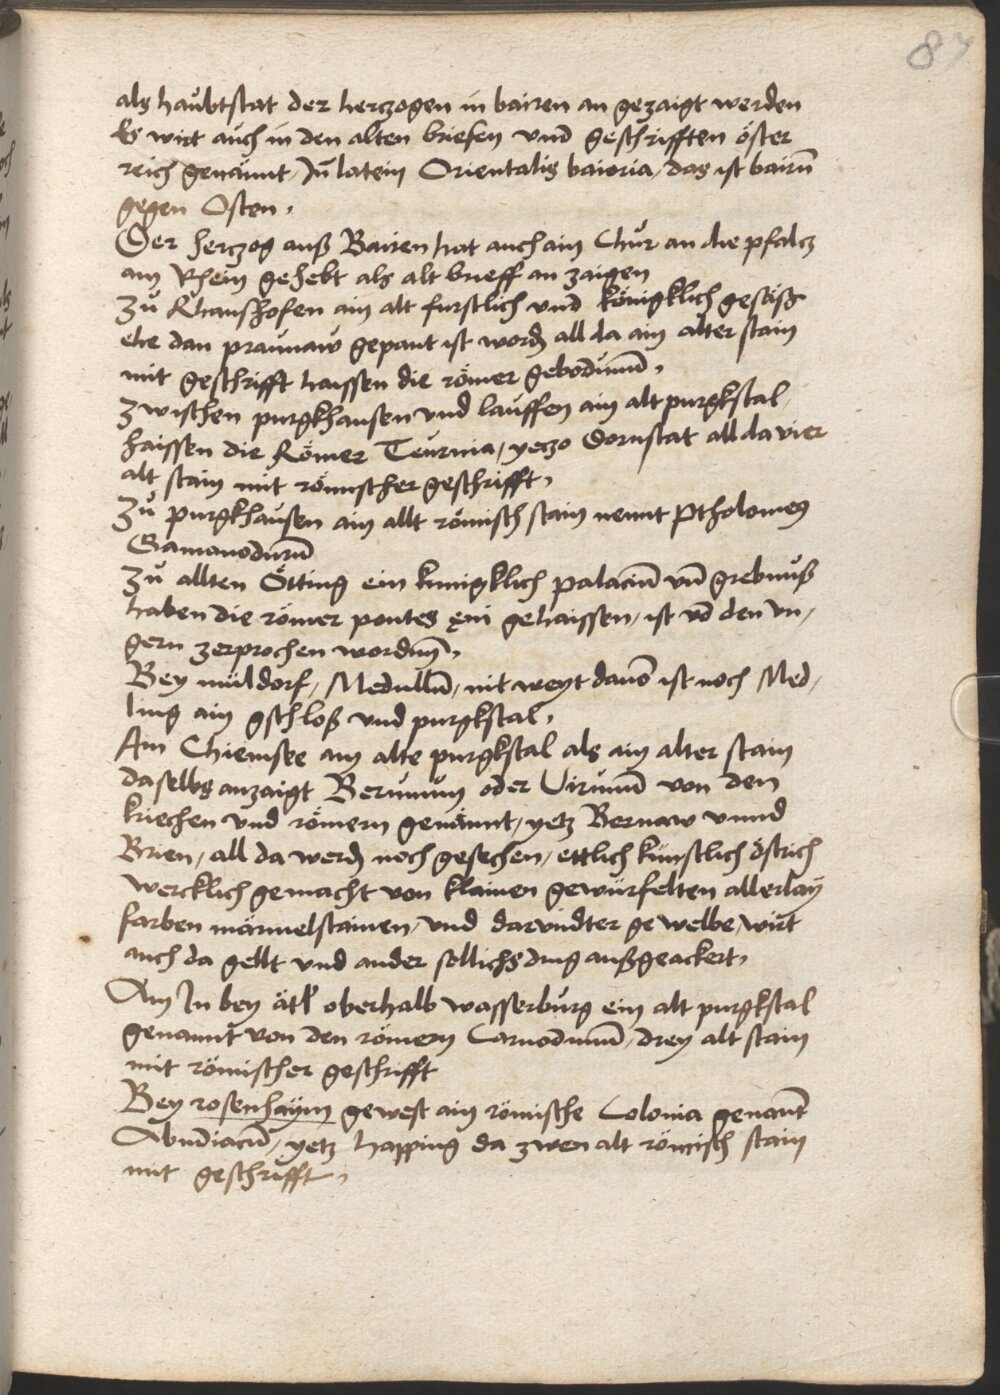 87
als haubtstat der herczogen in bairen an gezaigt werden
Es wirt auch in den alten briefen vnd geschrifften öster
reich genännt, In latein Orientalis baioria, das ist bairn̄
gegen Osten,
Der herczog auß Bairen hat auch ain Chur an die pfalcz
am Rhein gehebt als alt brieff an zaigen
Zu Ranshofen ain alt furstlich vnd königklich gesäß
ehe dan praunaw gepaut ist word̄ all da ain alter stain
mit geschrifft haissen die römer gebodunū,
Zwischen purgkhausen vnd lauffen ain alt purgkstal
haissen die Römer Teurnia, yeczo Dornstat all da vier
alt stain mit römischer geschrifft,
Zu purgkhausen ain allt römisch stain nennt Ptholomeg
Gamanodurū
Zu allten Ötting ein kunigklich palaciū vn̄ grebnuß
haben die römer pontes ęni gehaissen, ist vō den vn,
gern zerprochen wordnn,
Bey müldorf, Medullū, nit weyt dauō ist noch Med,
ling ain gschloß vnd purgkstal,
Am Chiemsee am alte purgkstal als ain alter stain
daselbs anzaigt Berunum oder Virunū von den
kriechen vnd römern genännt, yetz Bernaw vnnd
Brien, all da werd̄ noch gesechen, ettlich künstlich östrich
wercklich gemacht von klainen gewürfelten allerlaÿ
farben märmelstainen, vnd darundter gewelbe, wirt
auch da gellt vnd ander sollichs ding außgeackert,
Am In bey ätl oberhalb wasserburg ein alt purgkstal
genannt von den römern Carnodunū, drey alt stain
mit römischer geschrifft
Bey rosenhaÿm gewest ain römische Colonia genant
Abudiacū, yetz happing da zwen alt römisch stain
mit geschrifft,